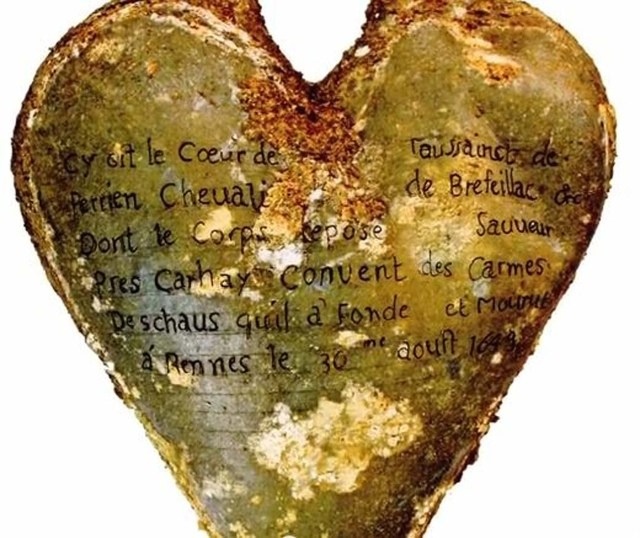 Cy Git le Cœur de Taussainct de
Perrien Cheuali de Brefeillac &c
Dont le Corps Repose Sauueur
Pres Carhay Convent des Carmes
Deschaus quil a Fondé et Mourut
á Rennes le 30 me aoust